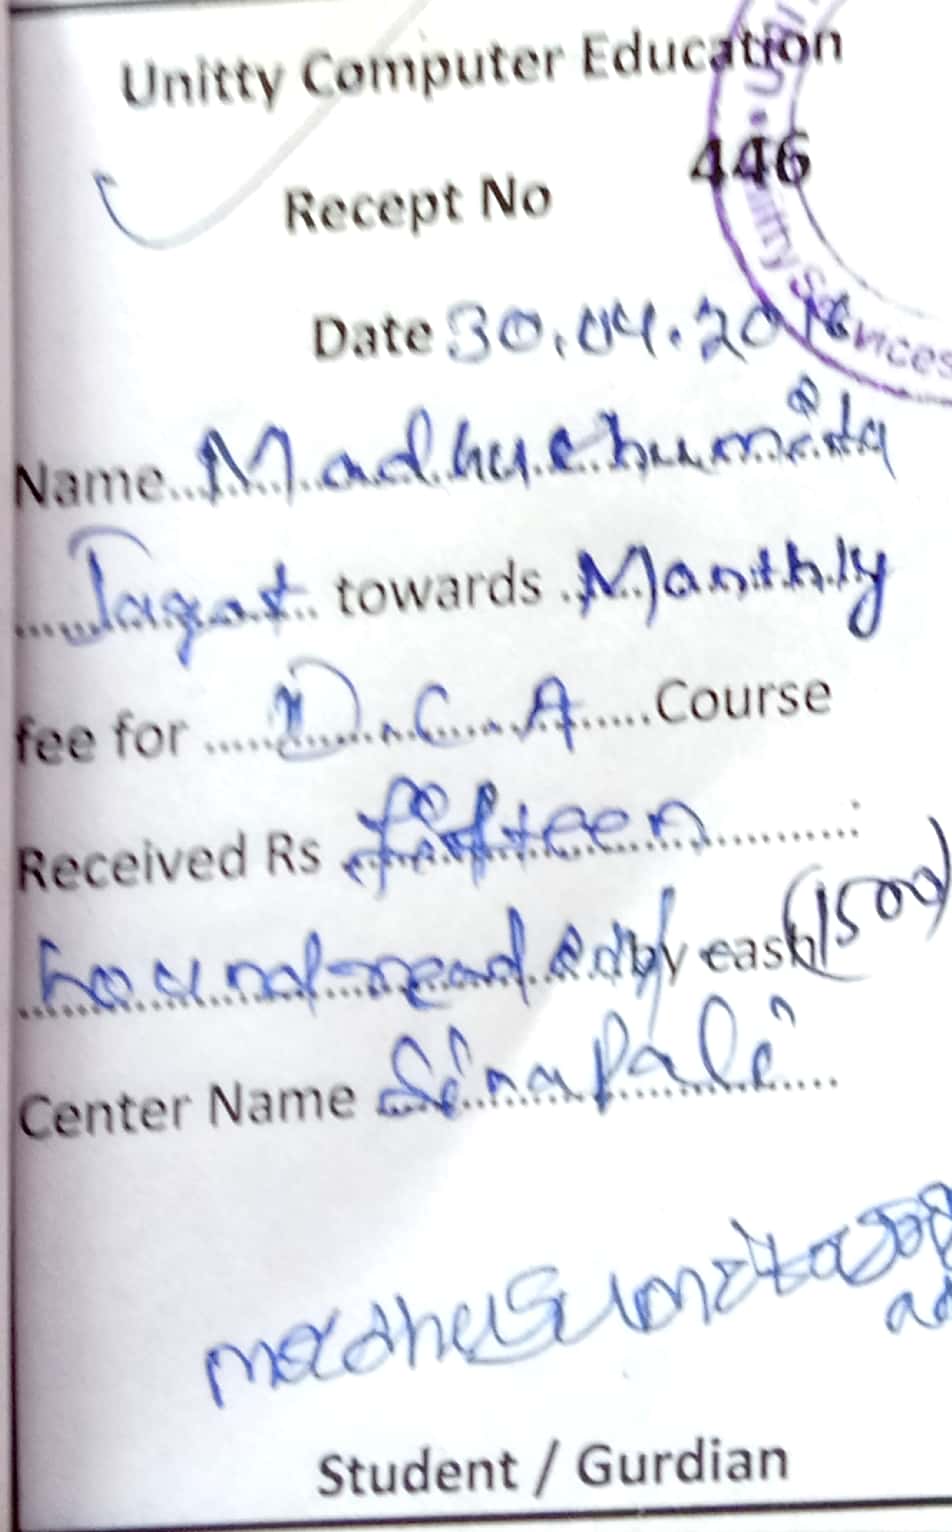 Unitty Computer Education
446
Recept No
Date 30.04.2016
Name Madhuchumita
Jagat towards Monthly
fee for D.C.A Course
Received Rs fifteen
by cash (1500)
Center Name Sinapali
Unitty Services
Student / Gurdian